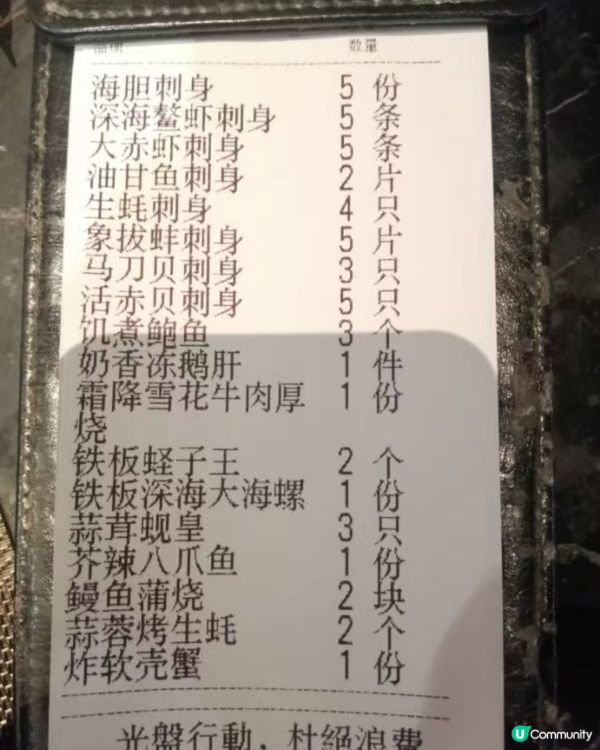 品项 数量
海胆刺身 5 份
深海鳌虾刺身 5 条
大赤虾刺身 5 条
油甘鱼刺身 2 片
生蚝刺身 4 只
象拔蚌刺身 5 片
马刀贝刺身 3 只
活赤贝刺身 5 只
饥煮鲍鱼 3 个
奶香冻鹅肝 1 件
霜降雪花牛肉厚 1 份
烧
铁板蛏子王 2 个
铁板深海大海螺 1 份
蒜茸蚬皇 3 只
芥辣八爪鱼 1 份
鳗鱼蒲烧 2 块
蒜蓉烤生蚝 2 个
炸软壳蟹 1 份
光盤行動，杜絕浪費
U Community